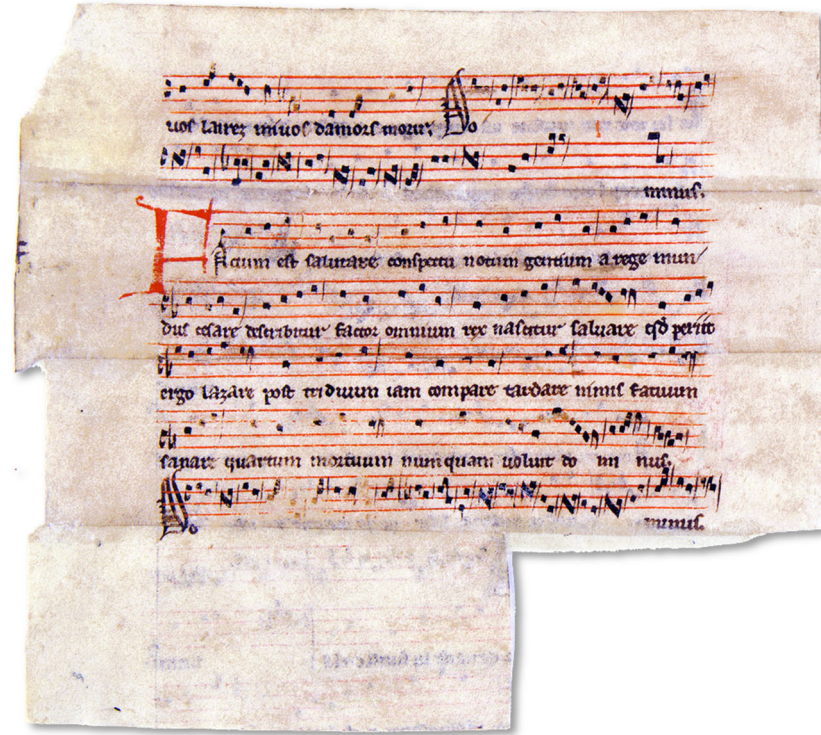 vos lairez im vos damors morir. Do
minus.
Factum est salutare conspectu notum gentium a rege mun
dus cesare describitur factor omnium rex nascitur salvare qd periit
ergo lazare post triduum iam compare tardare nimis fatuum
sanare quartum mortuum numquam voluit do mi nus.
Do minus.